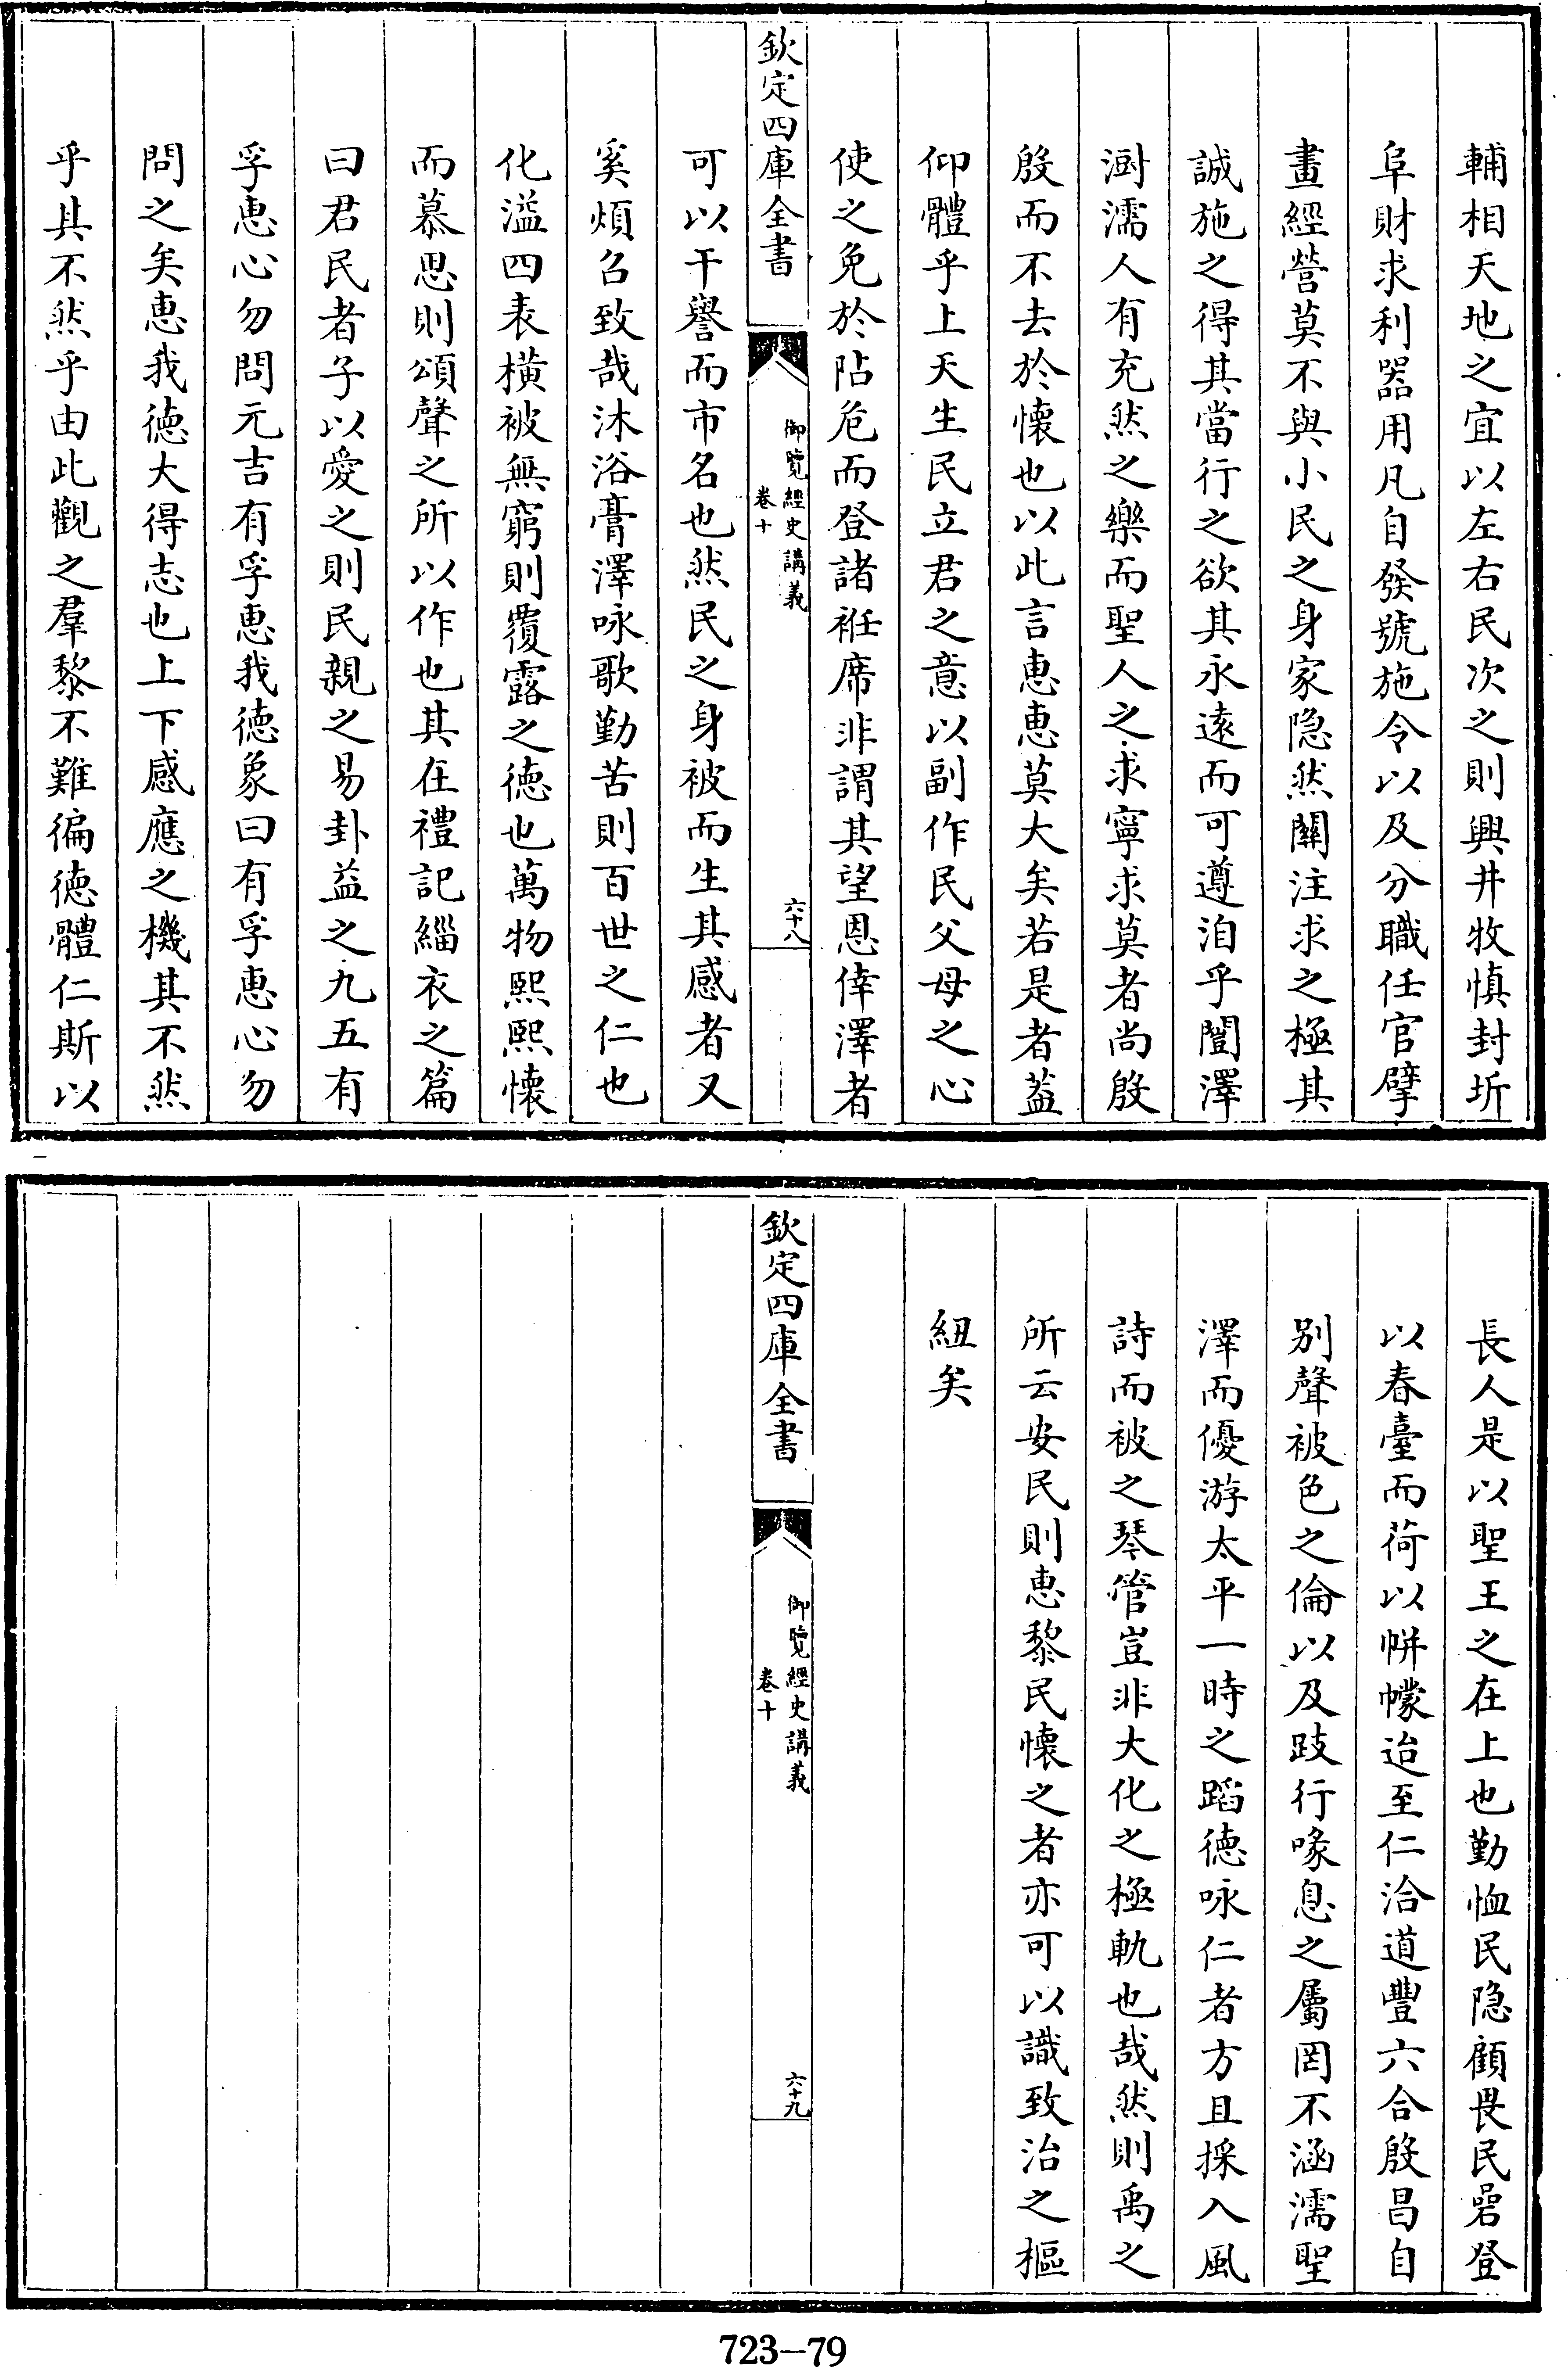 輔相天地之宜以左右民次之則興井牧慎封圻
阜財求利器用凡自發號施令以及分職任官擘
畫經營莫不與小民之身家隐然關注求之極其
誠施之得其當行之欲其永逺而可遵洎乎闓澤
澍濡人有充然之樂而聖人之求寧求莫者尚殷
殷而不去於懐也以此言惠惠莫大矣若是者葢
仰體乎上天生民立君之意以副作民父母之心
使之免於阽危而登諸袵席非謂其望恩倖澤者
欽定四庫全書
御覽經史講義
卷十
六十八
可以干譽而市名也然民之身被而生其感者又
奚煩召致哉沐浴膏澤咏歌勤苦則百世之仁也
化溢四表横被無窮則覆露之徳也萬物熙熙懐
而慕思則頌聲之所以作也其在禮記緇衣之篇
曰君民者子以愛之則民親之易卦益之九五有
孚惠心勿問元吉有孚惠我徳象曰有孚惠心勿
問之矣惠我徳大得志也上下感應之機其不然
乎其不然乎由此觀之羣黎不難徧徳體仁斯以
長人是以聖王之在上也勤恤民隐顧畏民碞登
以春臺而荷以帡幪迨至仁洽道豐六合殷昌自
别聲被色之倫以及跂行喙息之屬罔不涵濡聖
澤而優游太平一時之蹈徳咏仁者方且採入風
詩而被之琴管豈非大化之極軌也哉然則禹之
所云安民則恵黎民懐之者亦可以識致治之樞
紐矣
欽定四庫全書
御覽經史講義
卷十
六十九
723-79